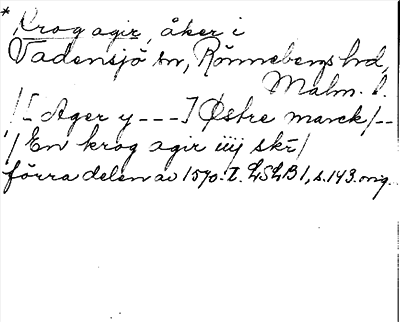 * Krog agir, åker i
Vadensjö sn, Rönnebergs hd,
Malm. l.
/[Ager y ---] Østre marck/--
/En krog agir iiij skr/
förra delen av 1570-t. LSLB1, s.143. orig.